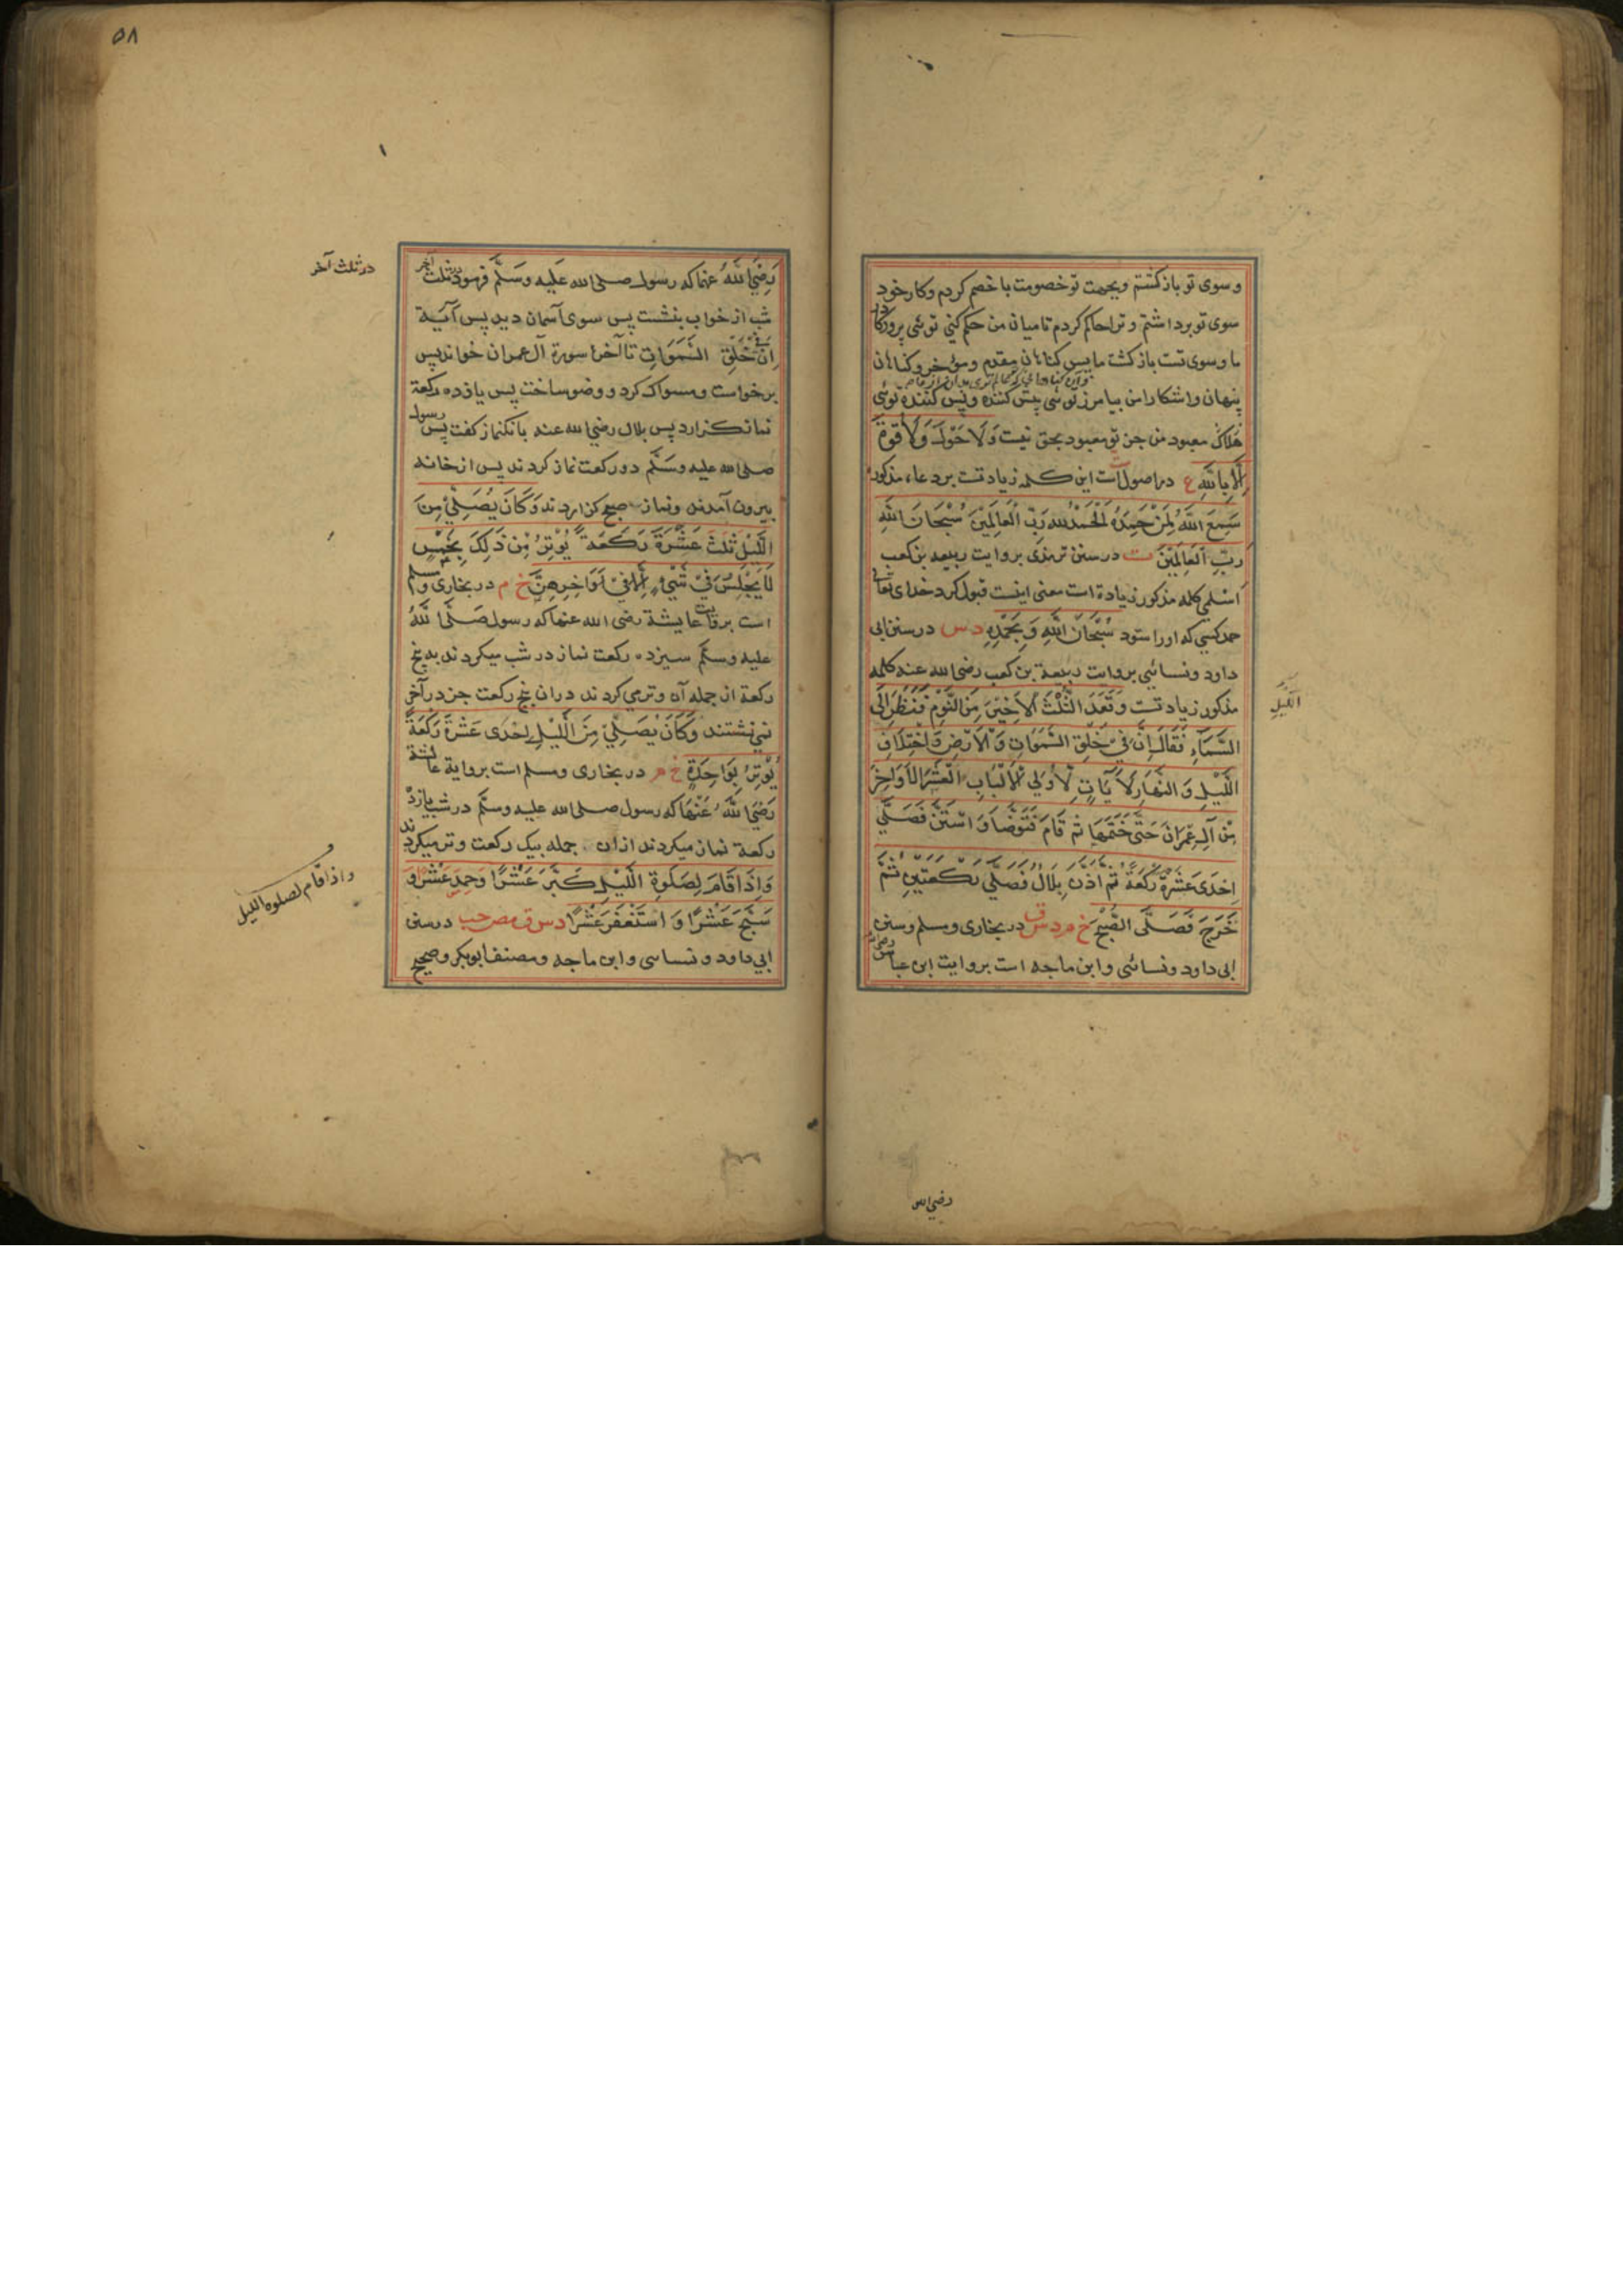 وسوی تو باز کشتم وبجهت تو خصومت با خصم کردم وکار خود
سوی تو برداشتم وترا حاکم کردم تا میان من حکم کنی توئی پروردکار
ما وسوی تست باز کشت ما پس کناهان مقدم ومؤخر وکناهان
پنهان واشکارا من بیامرز توئی پیش کننده وپس کننده توئی
معبود من جز تو معبود بحق نیست وَلَا حَوْلَ وَلَا قُوَّةَ
اِلَّا بِاللّٰهِ ع در اصول ست این کلمه زیادتست بر دعاء مذکور
سَمِعَ اللّٰهُ لِمَنْ حَمِدَهُ اَلْحَمْدُ لِلّٰهِ رَبِّ الْعَالَمِيْنَ سُبْحَانَ اللّٰهِ
رَبِّ الْعَالَمِيْنَ ت در سنن ترمذی بروایت ربیعه بن کعب
اسلمی کلمه مذکور زیادة است معنی اینست قبول کرد خدای تعالی
حمد کسی که اورا ستود سُبْحَانَ اللّٰهِ وَبِحَمْدِهِ د س در سنن ابی
داود ونسائی بروایت ربیعة بن کعب رضی الله عنه کلمه
مذکور زیادتست وَقَعَدَ الثُّلُثَ الْاَخِيْرَ مِنَ النَّوْمِ فَنَظَرَ اِلَى
السَّمَاءِ فَقَالَ اِنَّ فِيْ خَلْقِ السَّمٰوَاتِ وَالْاَرْضِ وَاخْتِلَافِ
اللَّيْلِ وَالنَّهَارِ لَاٰيَاتٍ لِاُولِي الْاَلْبَابِ الْعَشْرَ الْاَوَاخِرَ
مِنْ آلِ عِمْرَانَ حَتّٰى خَتَمَهَا ثُمَّ قَامَ فَتَوَضَّأَ وَاسْتَنَّ فَصَلّٰى
اِحْدَى عَشْرَةَ رَكْعَةً ثُمَّ اَذَّنَ بِلَالٌ فَصَلّٰى رَكْعَتَيْنِ ثُمَّ
خَرَجَ فَصَلَّى الصُّبْحَ خ م د س ق در بخاری ومسلم وسنن
ابی داود ونسائی وابن ماجه است بروایت ابن عباس
اللَّيْلِ
رضی الله
۵۸
رَضِيَ اللّٰهُ عنهما که رسول صلی الله عَلَيه وسَلَّم فرمود در ثلث آخر
شب از خواب بنشست پس سوی آسمان دید پس آیة
اِنَّ فِيْ خَلْقِ السَّمٰوَاتِ تا آخر سورة آل عمران خواند پس
برخواست ومسواک کرد ووضو ساخت پس یازده رکعة
نماز کزارد پس بلال رضی الله عنه بانکنماز کفت پس رسول
صلی الله علیه وسَلَّم دو رکعت نماز کردند پس از خانه
بیرون آمدند ونماز صبح کزاردند وَكَانَ يُصَلِّيْ مِنَ
اللَّيْلِ ثَلٰثَ عَشْرَةَ رَكْعَةً يُوْتِرُ مِنْ ذٰلِكَ بِخَمْسٍ
لَا يَجْلِسُ فِيْ شَيْءٍ اِلَّا فِيْ اَوَاخِرِهِنَّ خ م در بخاری ومسلم
است بروایت عایشة رضی الله عنها که رسول صَلَّى اللّٰهُ
علیه وسلَّم سیزده رکعت نماز در شب میکردند به پنج
رکعة از جمله آن وتر می کردند در آن پنج رکعت جز در آخر
نمی نشستند وَكَانَ يُصَلِّيْ مِنَ اللَّيْلِ اِحْدَى عَشْرَةَ رَكْعَةً
يُوْتِرُ بِوَاحِدَةٍ خ م در بخاری ومسلم است بروایة عایشة
رَضِيَ اللّٰهُ عَنْهَا که رسول صلی الله علیه وسلَّم در شب یازده
رکعة نماز میکردند از ان جمله بیک رکعت وتر میکردند
وَاِذَا قَامَ لِصَلٰوةِ اللَّيْلِ كَبَّرَ عَشْرًا وَحَمِدَ عَشْرًا وَ
سَبَّحَ عَشْرًا وَاسْتَغْفَرَ عَشْرًا د س ق مص حب در سنن
ابی داود ونساسی وابن ماجه ومصنف ابوبکر وصحیح
در ثلث آخر
واذا قام لصلوه اللیل